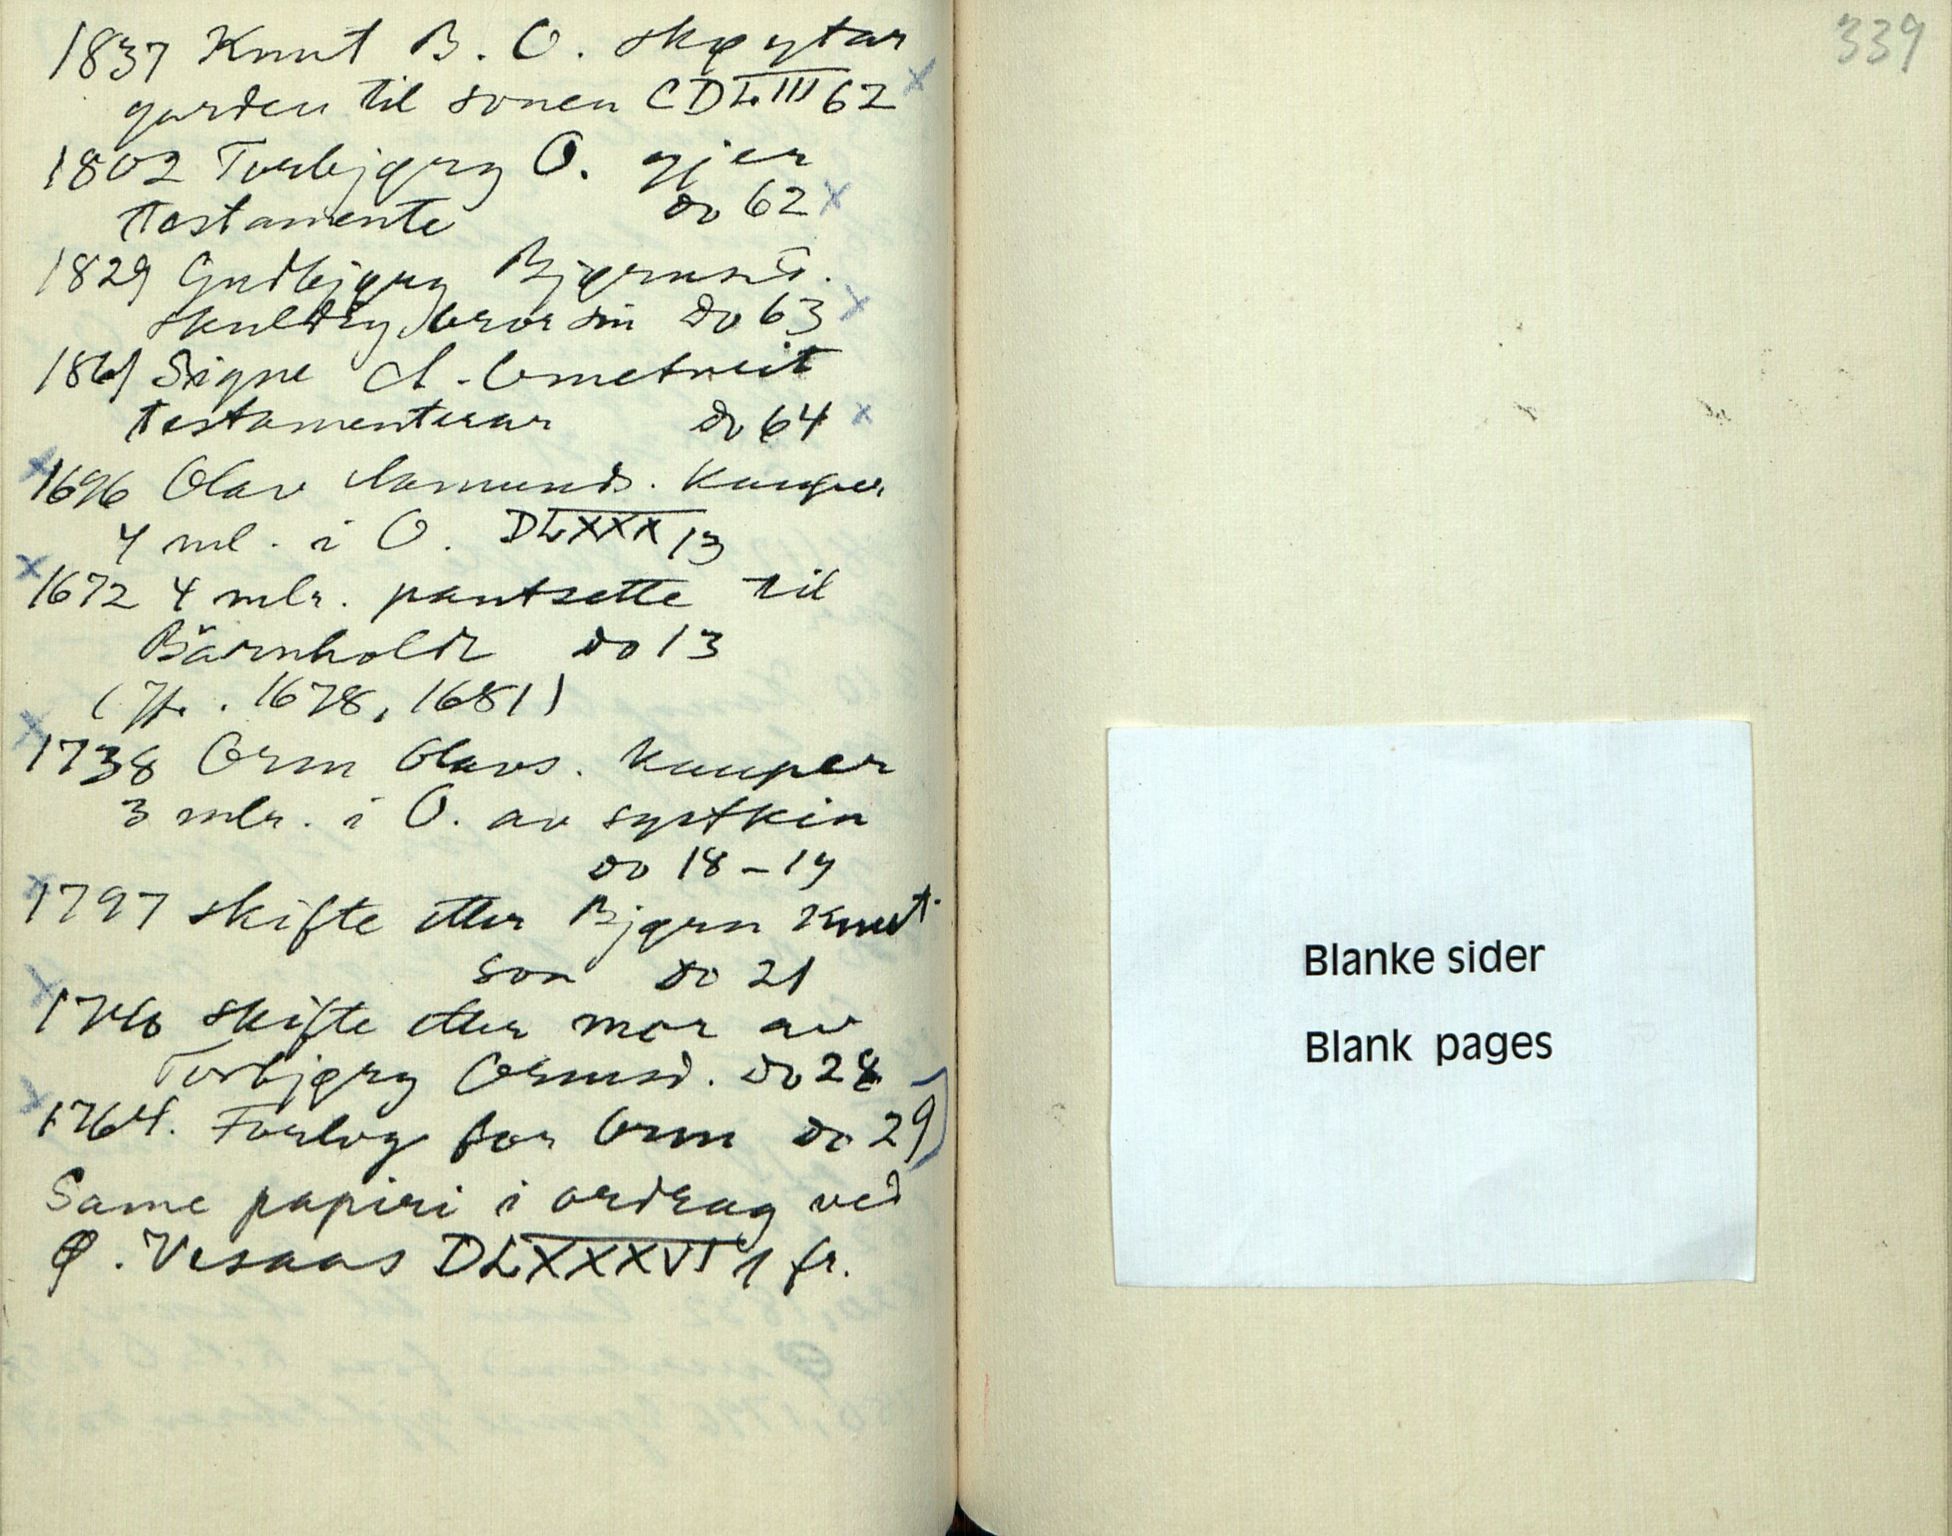 1837 Knut B. O. skøytar
garden til sonen CDLIII 62 x
1802 Torbjørg O. gjer
testamente do 62 x
1829 Gudbjørg Bjørnsd.
skuldig bror sin do 63 x
1861 Signe A. Ormetveit
testamenterar do 64 x
x 1696 Olav Aamunds. kauper
4 ml. i O. DLXXX 13
x 1672 4 mlr. pantsette til
Bärnholdt do 13
(Jfr. 1678, 1681)
x 1738 Orm Olavs. kauper
3 mlr. i O. av systkin
do 18-19
x 1797 skifte etter Bjørn Knut-
son do 21
x 1746 skifte etter mor av
Torbjørg Ormsd. do 28
x 1764. Forlog for Orm do 29)
Same papiri i ordrag ved
Ø. Vesaas DLXXXVI 1 fr.
339
Blanke sider
Blank pages